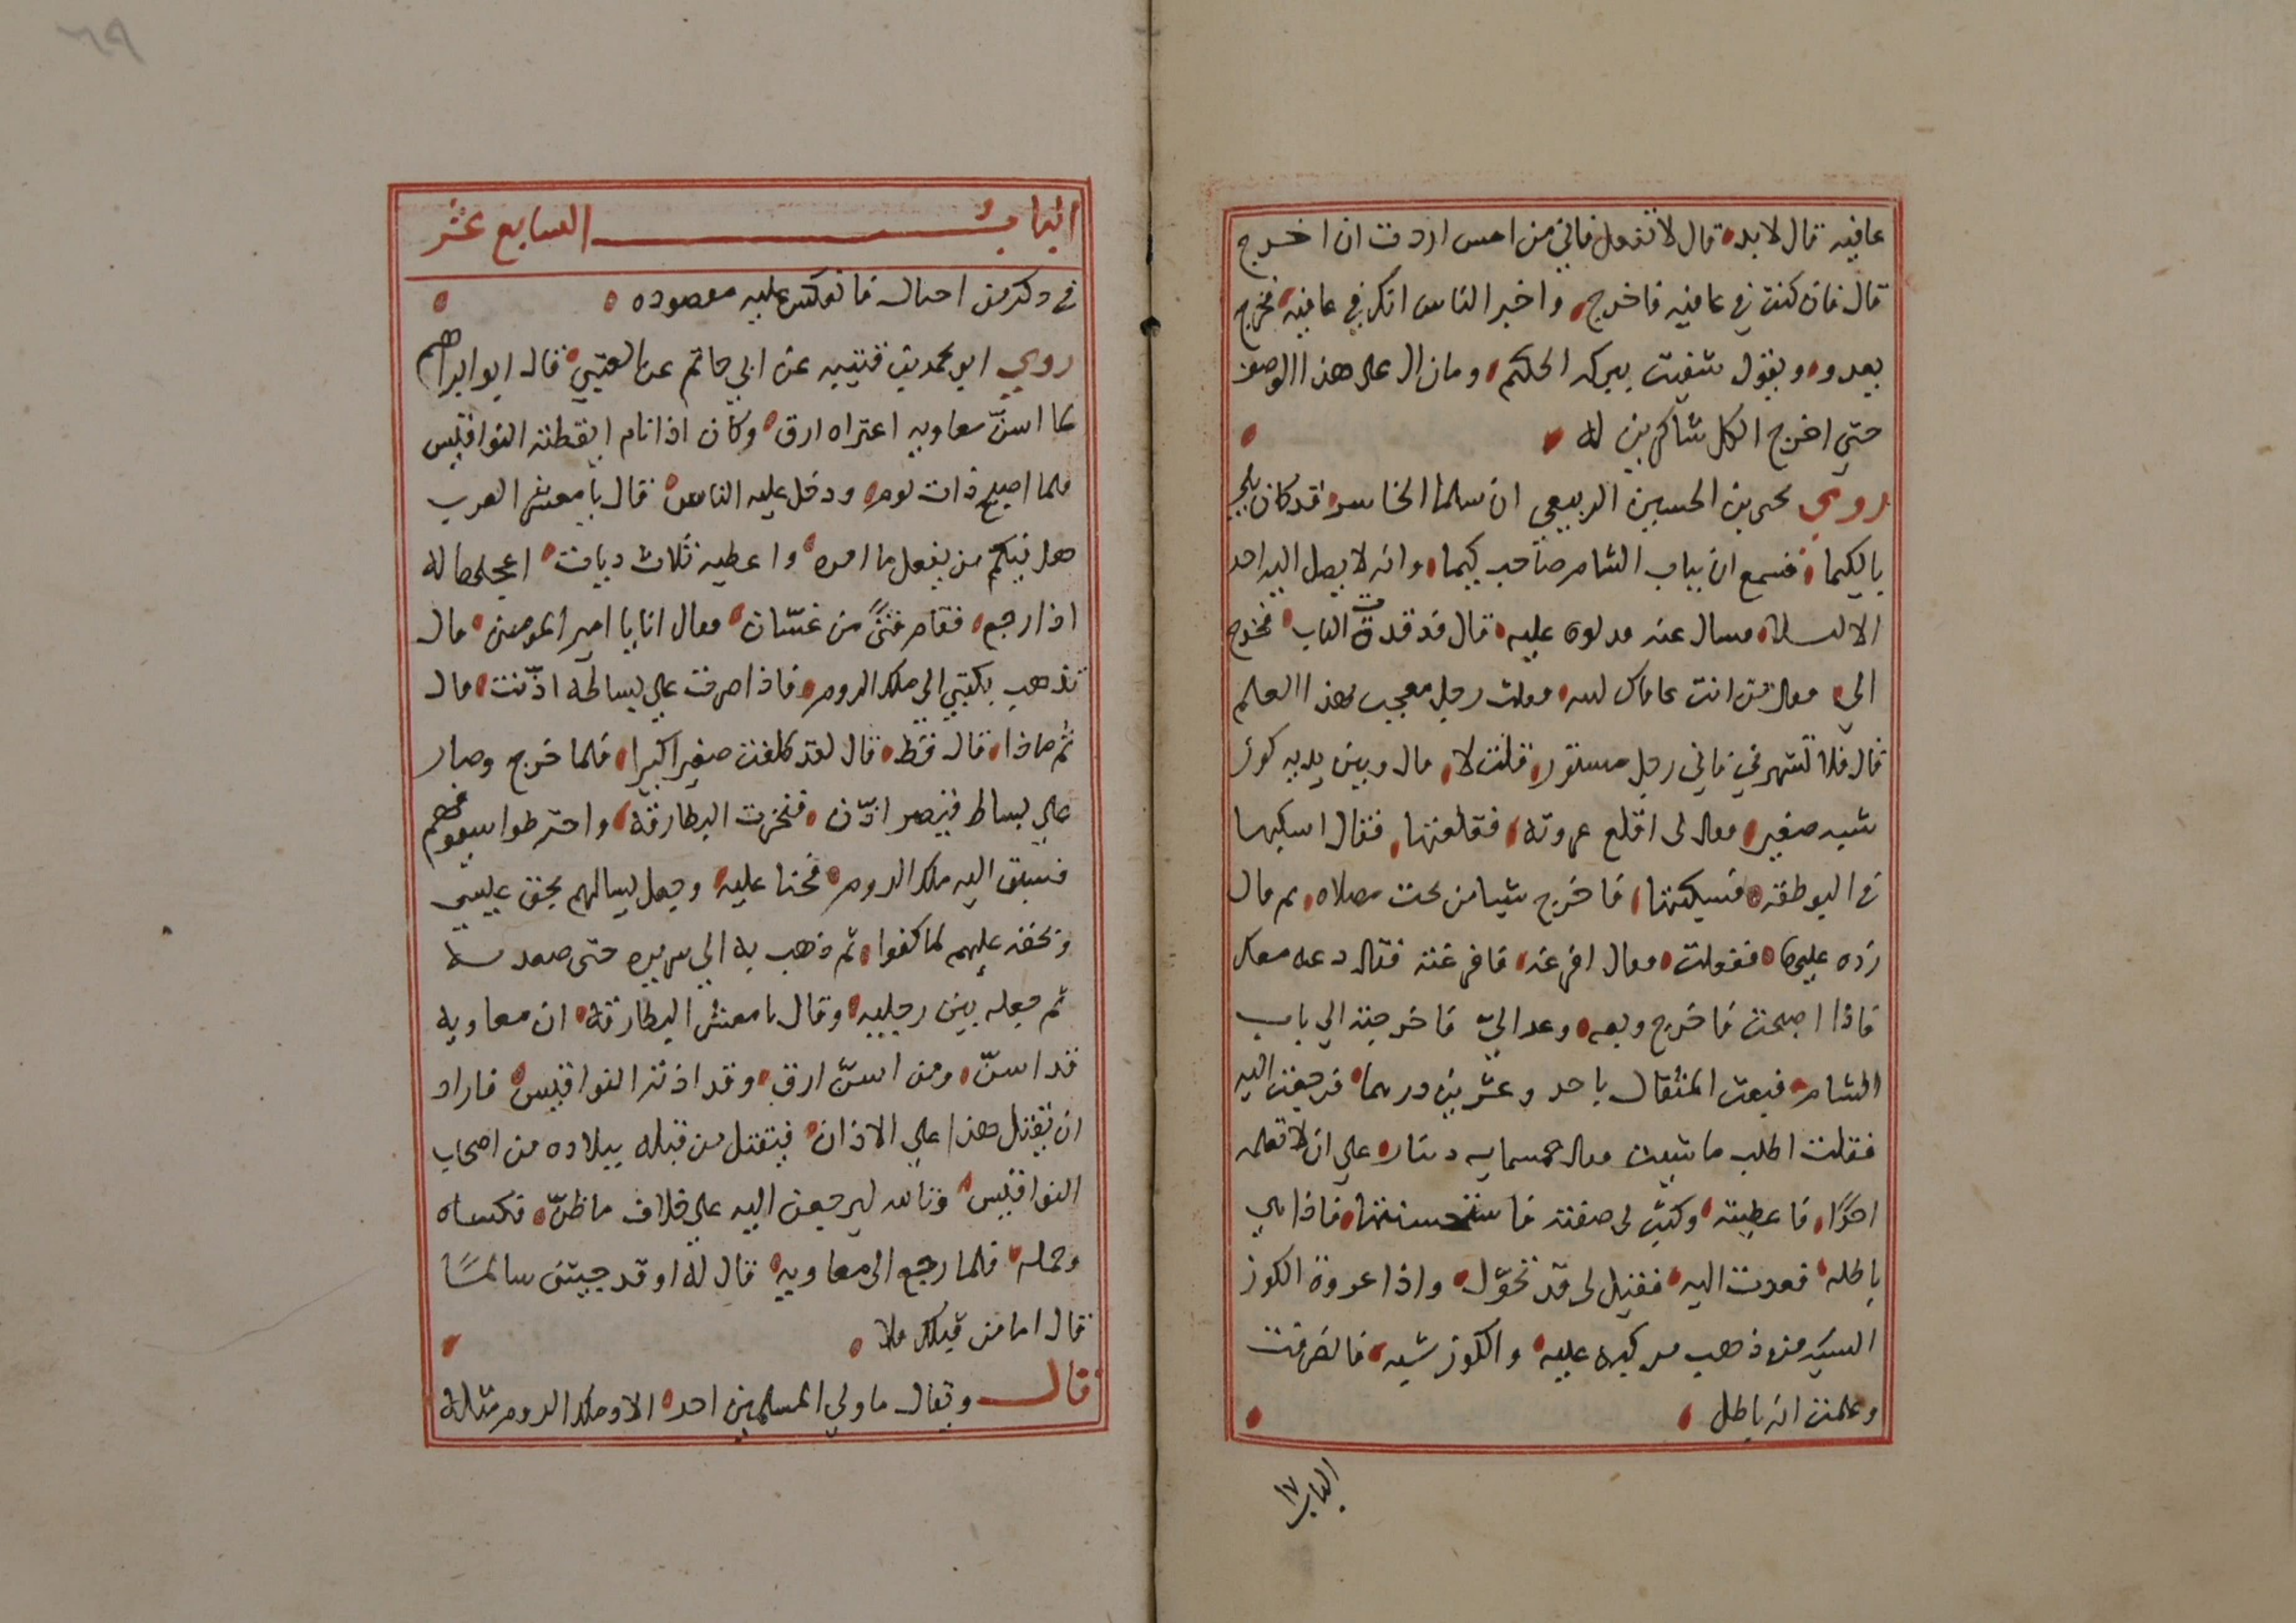 عافيه قال لا بد قال لا تفعل فاني من امس اردت ان اخرج
قال فان كنت في عافيه فاخرج واخبر الناس انك في عافيه فخرج
يعدو ويقول شفيت ببركه الحكيم وما زال على هذا الوصف
حتي اخرج الكل شاكرين له
روي يحيى بن الحسين الربيعي ان سلما الخاسر قد كان بلي
بالكيما فسمع ان بباب الشام صاحب كيما وانه لا يصل اليه احد
الا ليلا فسال عنه فدلوه عليه قال فدققت الباب فخرج
الي فقال من انت عافاك الله فقلت رجل معجب بهذا العلم
قال فلا تشهرني فاني رجل مستور قلت لا قال وبين يديه كوز
شبه صغير فقال لي اقلع عروته فقلعتها فقال اسكبها
في البوطقه فسبكتها فاخرج شيا من تحت مصلاه ثم قال
زده عليها ففعلت فقال افرغه فافرغته فقال دعه معك
فاذا اصبحت فاخرج وبعه وعد الي فاخرجته الي باب
الشام فبعت المثقال باحد وعشرين درهما فرجعت اليه
فقلت اطلب ما شيت قال خمسمايه دينار علي ان لا تعلمه
احدا فاعطيته وكتب لي صفته فاستحسنتها فاذا هي
باطله فعدت اليه فقيل لي قد تحول واذا عروة الكوز
الشبه من ذهب مركبه عليه والكوز شبه فانصرفت
وعلمت انه باطل
الباب ١٧
الباب السابع عشر
في ذكر من احتال فانعكس عليه مقصوده
روي ابو محمد بن قتيبه عن ابي حاتم عن العتبي قال ابو ابراهيم
لما اسنّ معاويه اعتراه ارق وكان اذا نام ايقظته النواقيس
فلما اصبح ذات يوم ودخل عليه الناس قال يا معشر العرب
هل فيكم من يفعل ما امره واعطيه ثلاث ديات اعجلها له
اذا رجع فقام فتىً من غسّان فقال انا يا امير المومنين قال
تذهب بكتبي الى ملك الروم فاذا صرت علي بساطه اذّنت قال
ثم ماذا قال فقط قال لقد كلفت صغيرا كبيرا فلما خرج وصار
علي بساط قيصر اذّن فنخرت البطارقة واخترطوا سيوفهم
فسبق اليه ملك الروم فحنا عليه وجعل يسالهم بحق عيسي
وبحقه عليهم لما كفوا ثم ذهب به الي سريره حتى صعد به
ثم جعله بين رجليه وقال يا معشر البطارقة ان معاويه
قد اسنّ ومن اسنّ ارق وقد اذته النواقيس فاراد
ان يقتل هذا علي الاذان فيقتل من قبله ببلاده من اصحاب
النواقيس وتالله ليرجعن اليه علي خلاف ما ظنّ فكساه
وحمله فلما رجع الى معاويه قال له اوقد جيتني سالمًا
قال اما من قبلك فلا
قال ويقال ما ولي المسلمين احد الا وملك الروم مثله